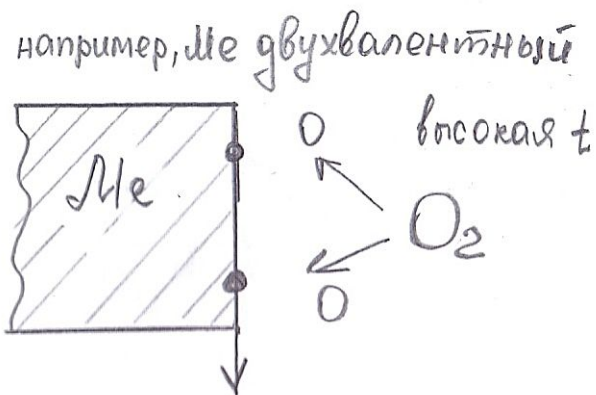 например, Ме двухвалентный
высокая t
Ме
O
O₂
O